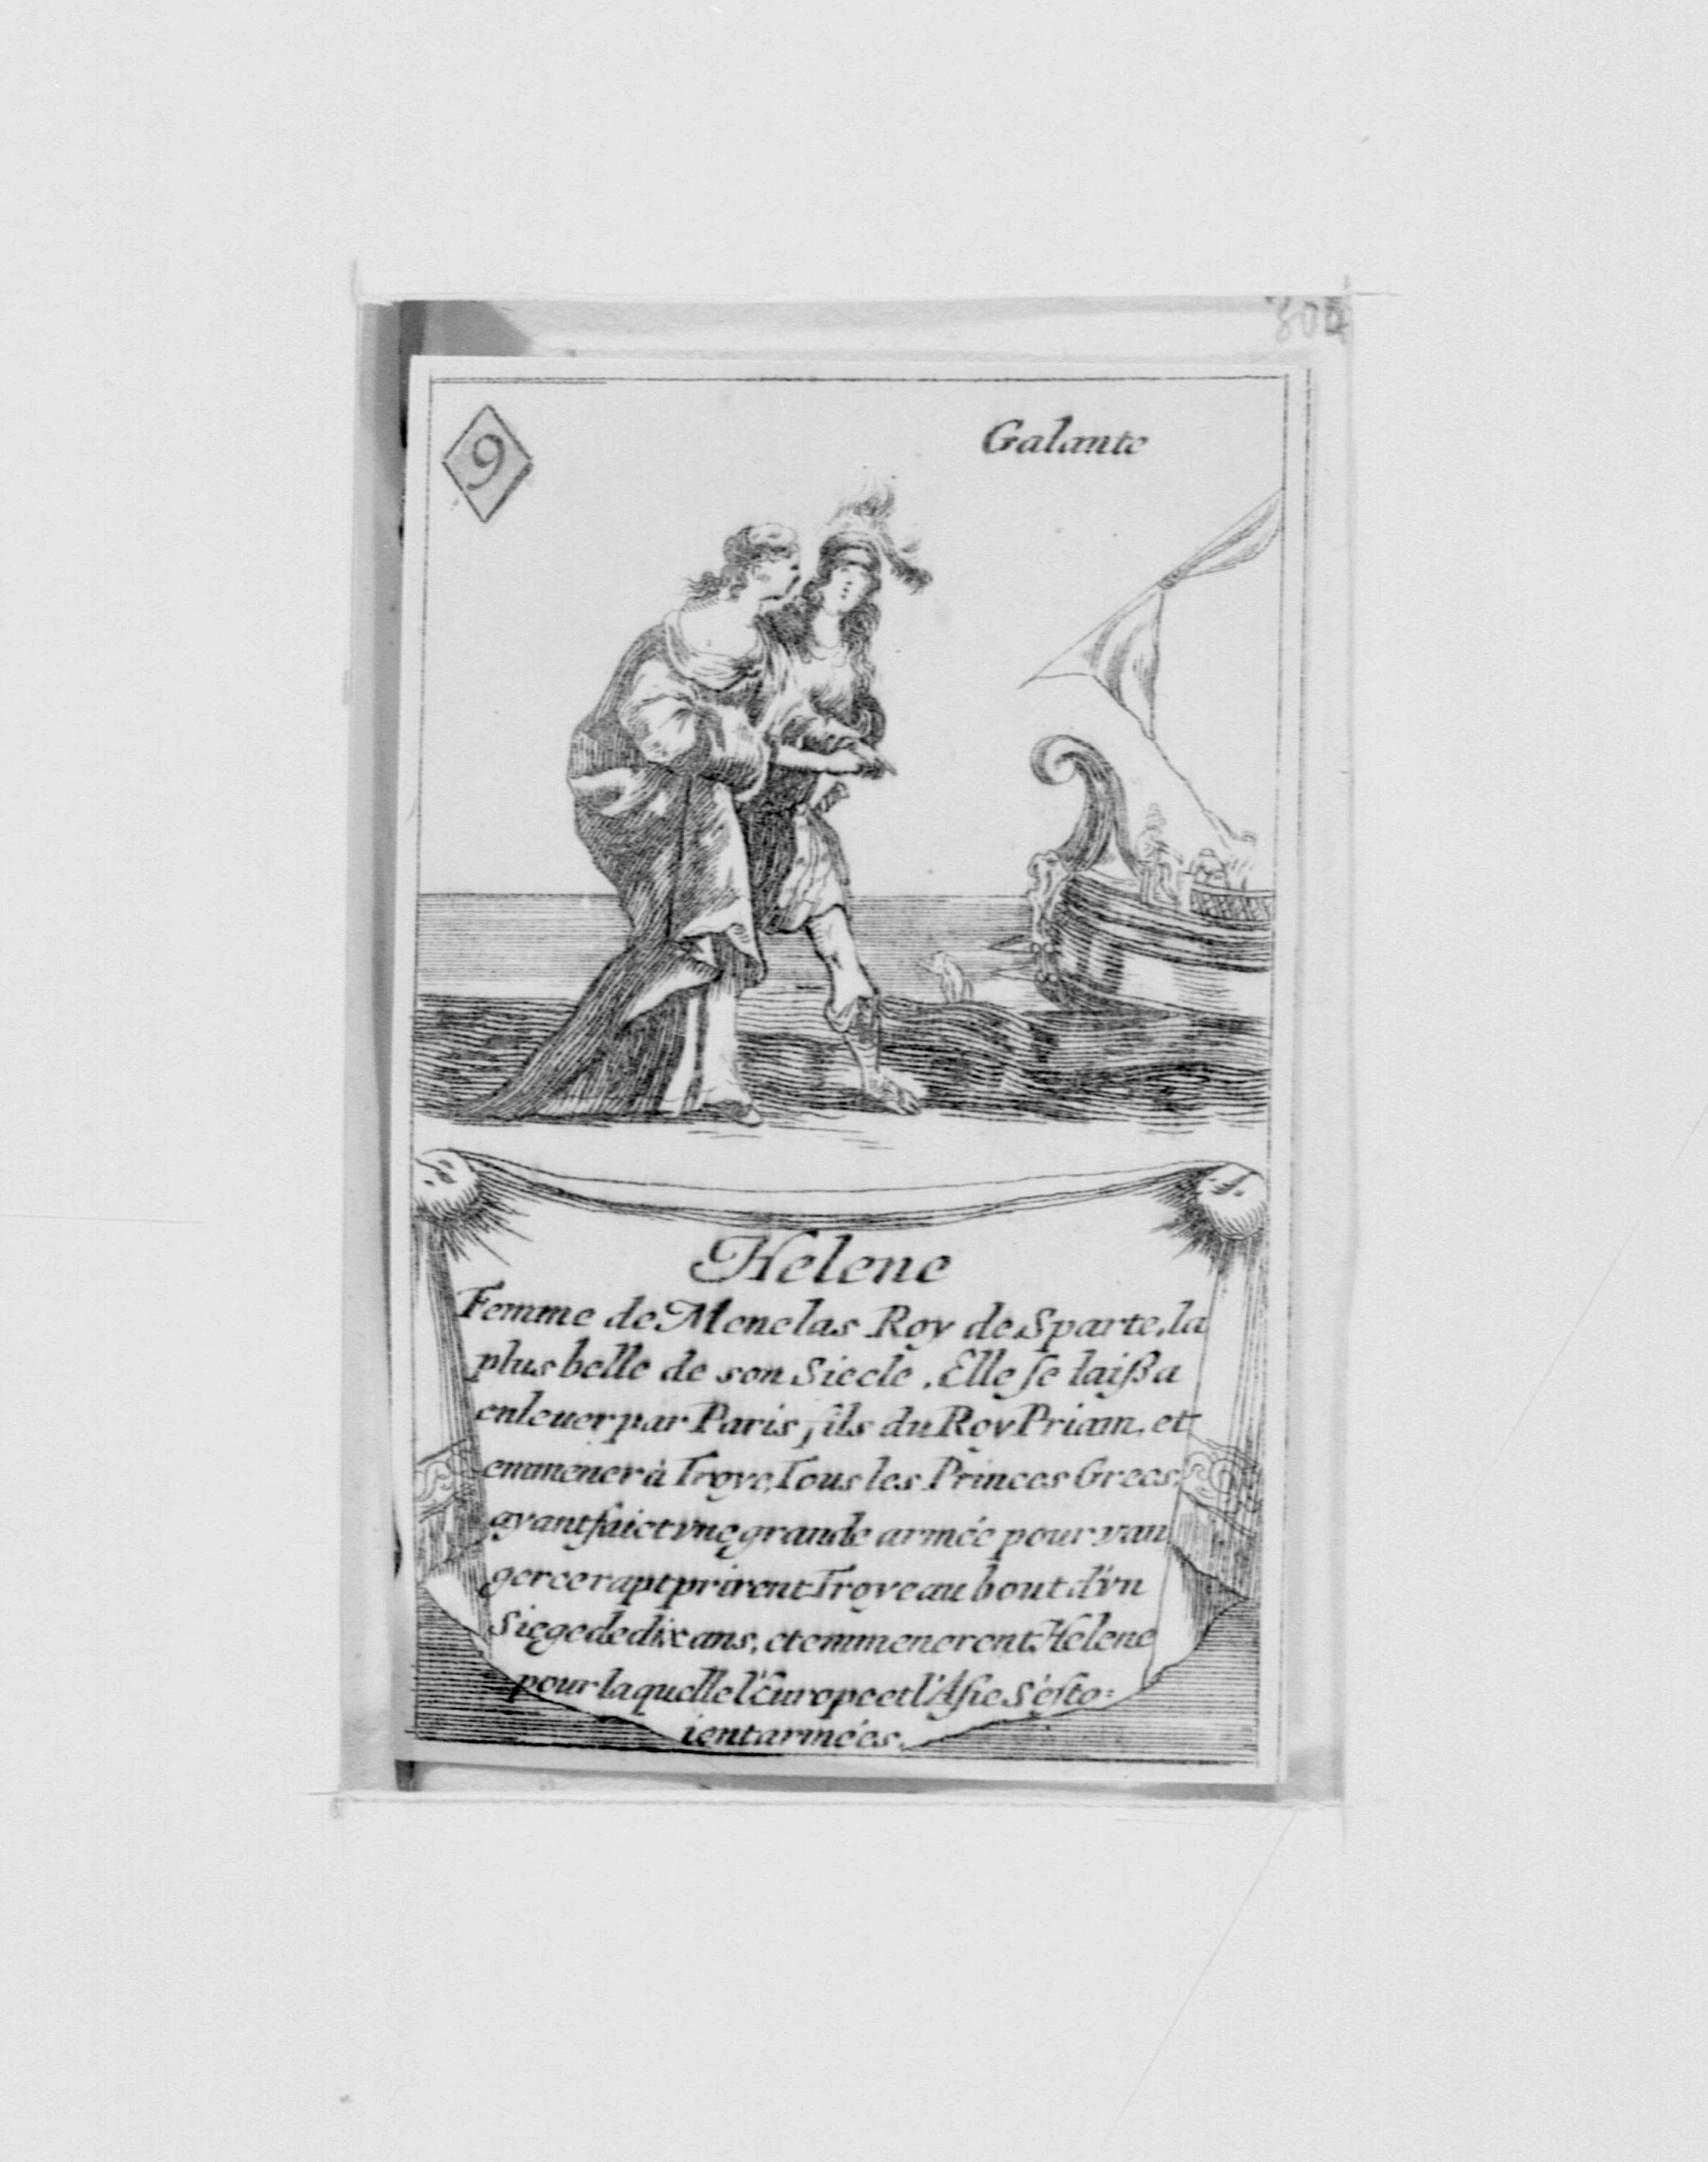 804
9
Galante
Helene
Femme de Menelas Roy de Sparte, la
plus belle de son Siecle. Elle se laißa
enleuer par Paris fils du Roy Priam, et
emmener à Troye, Tous les Princes Grecs,
ayant faict vne grande armée pour van
ger ce rapt prirent Troye au bout d'vn
Siege de dix ans, et emmenerent Helene
pour laquelle l'Europe et l'Asie s'esto=
ient armées.